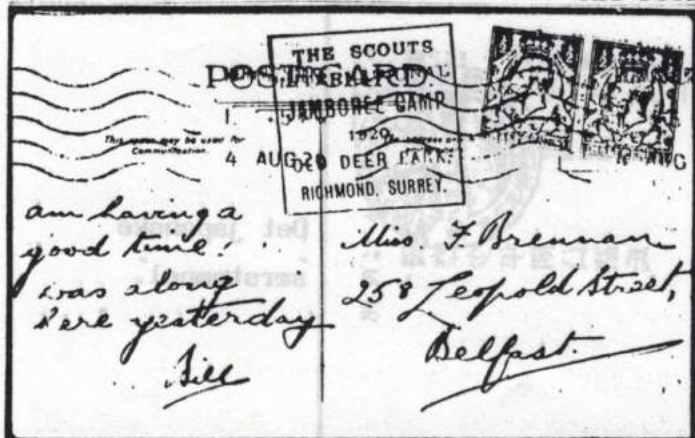 POST CARD
THE SCOUTS
INTERNATIONAL
JAMBOREE CAMP
1920
OLD DEER PARK.
RICHMOND, SURREY.
This space may be used for
Communication.
4 AUG 20
am having a
good time.
was along
here yesterday
Bill
Miss. F. Brennan
258 Leopold Street,
Belfast.